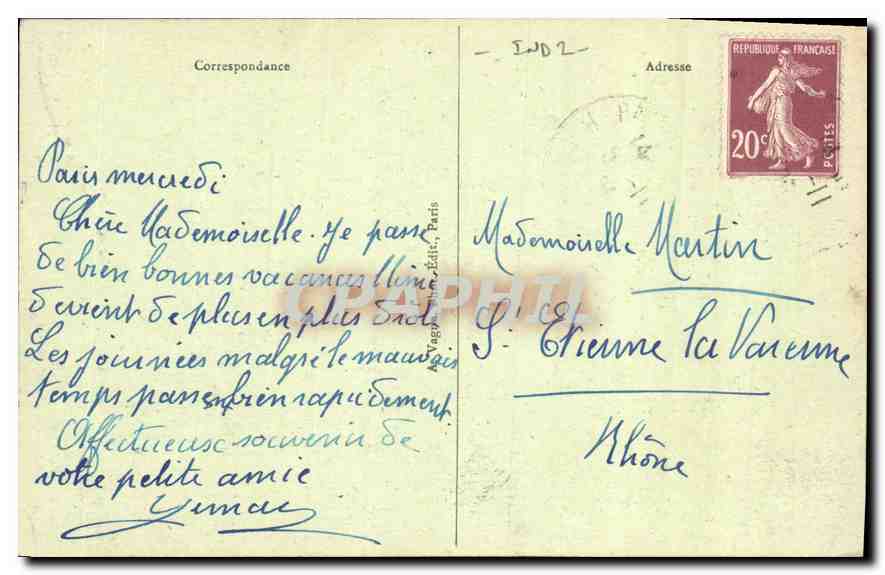 Correspondance
Paris mercredi
Chère Mademoiselle. Je passe
de bien bonnes vacances Mimi
devient de plus en plus drôle
Les journées malgré le mauvais
temps passent bien rapidement
Affectueux souvenir de
votre petite amie
A. Vagné, Phot.-Édit., Paris
CPAPHIL
IND 2
Adresse
REPUBLIQUE FRANÇAISE
20c
POSTES
PA
Mademoiselle Martin
St Etienne la Varenne
Rhône